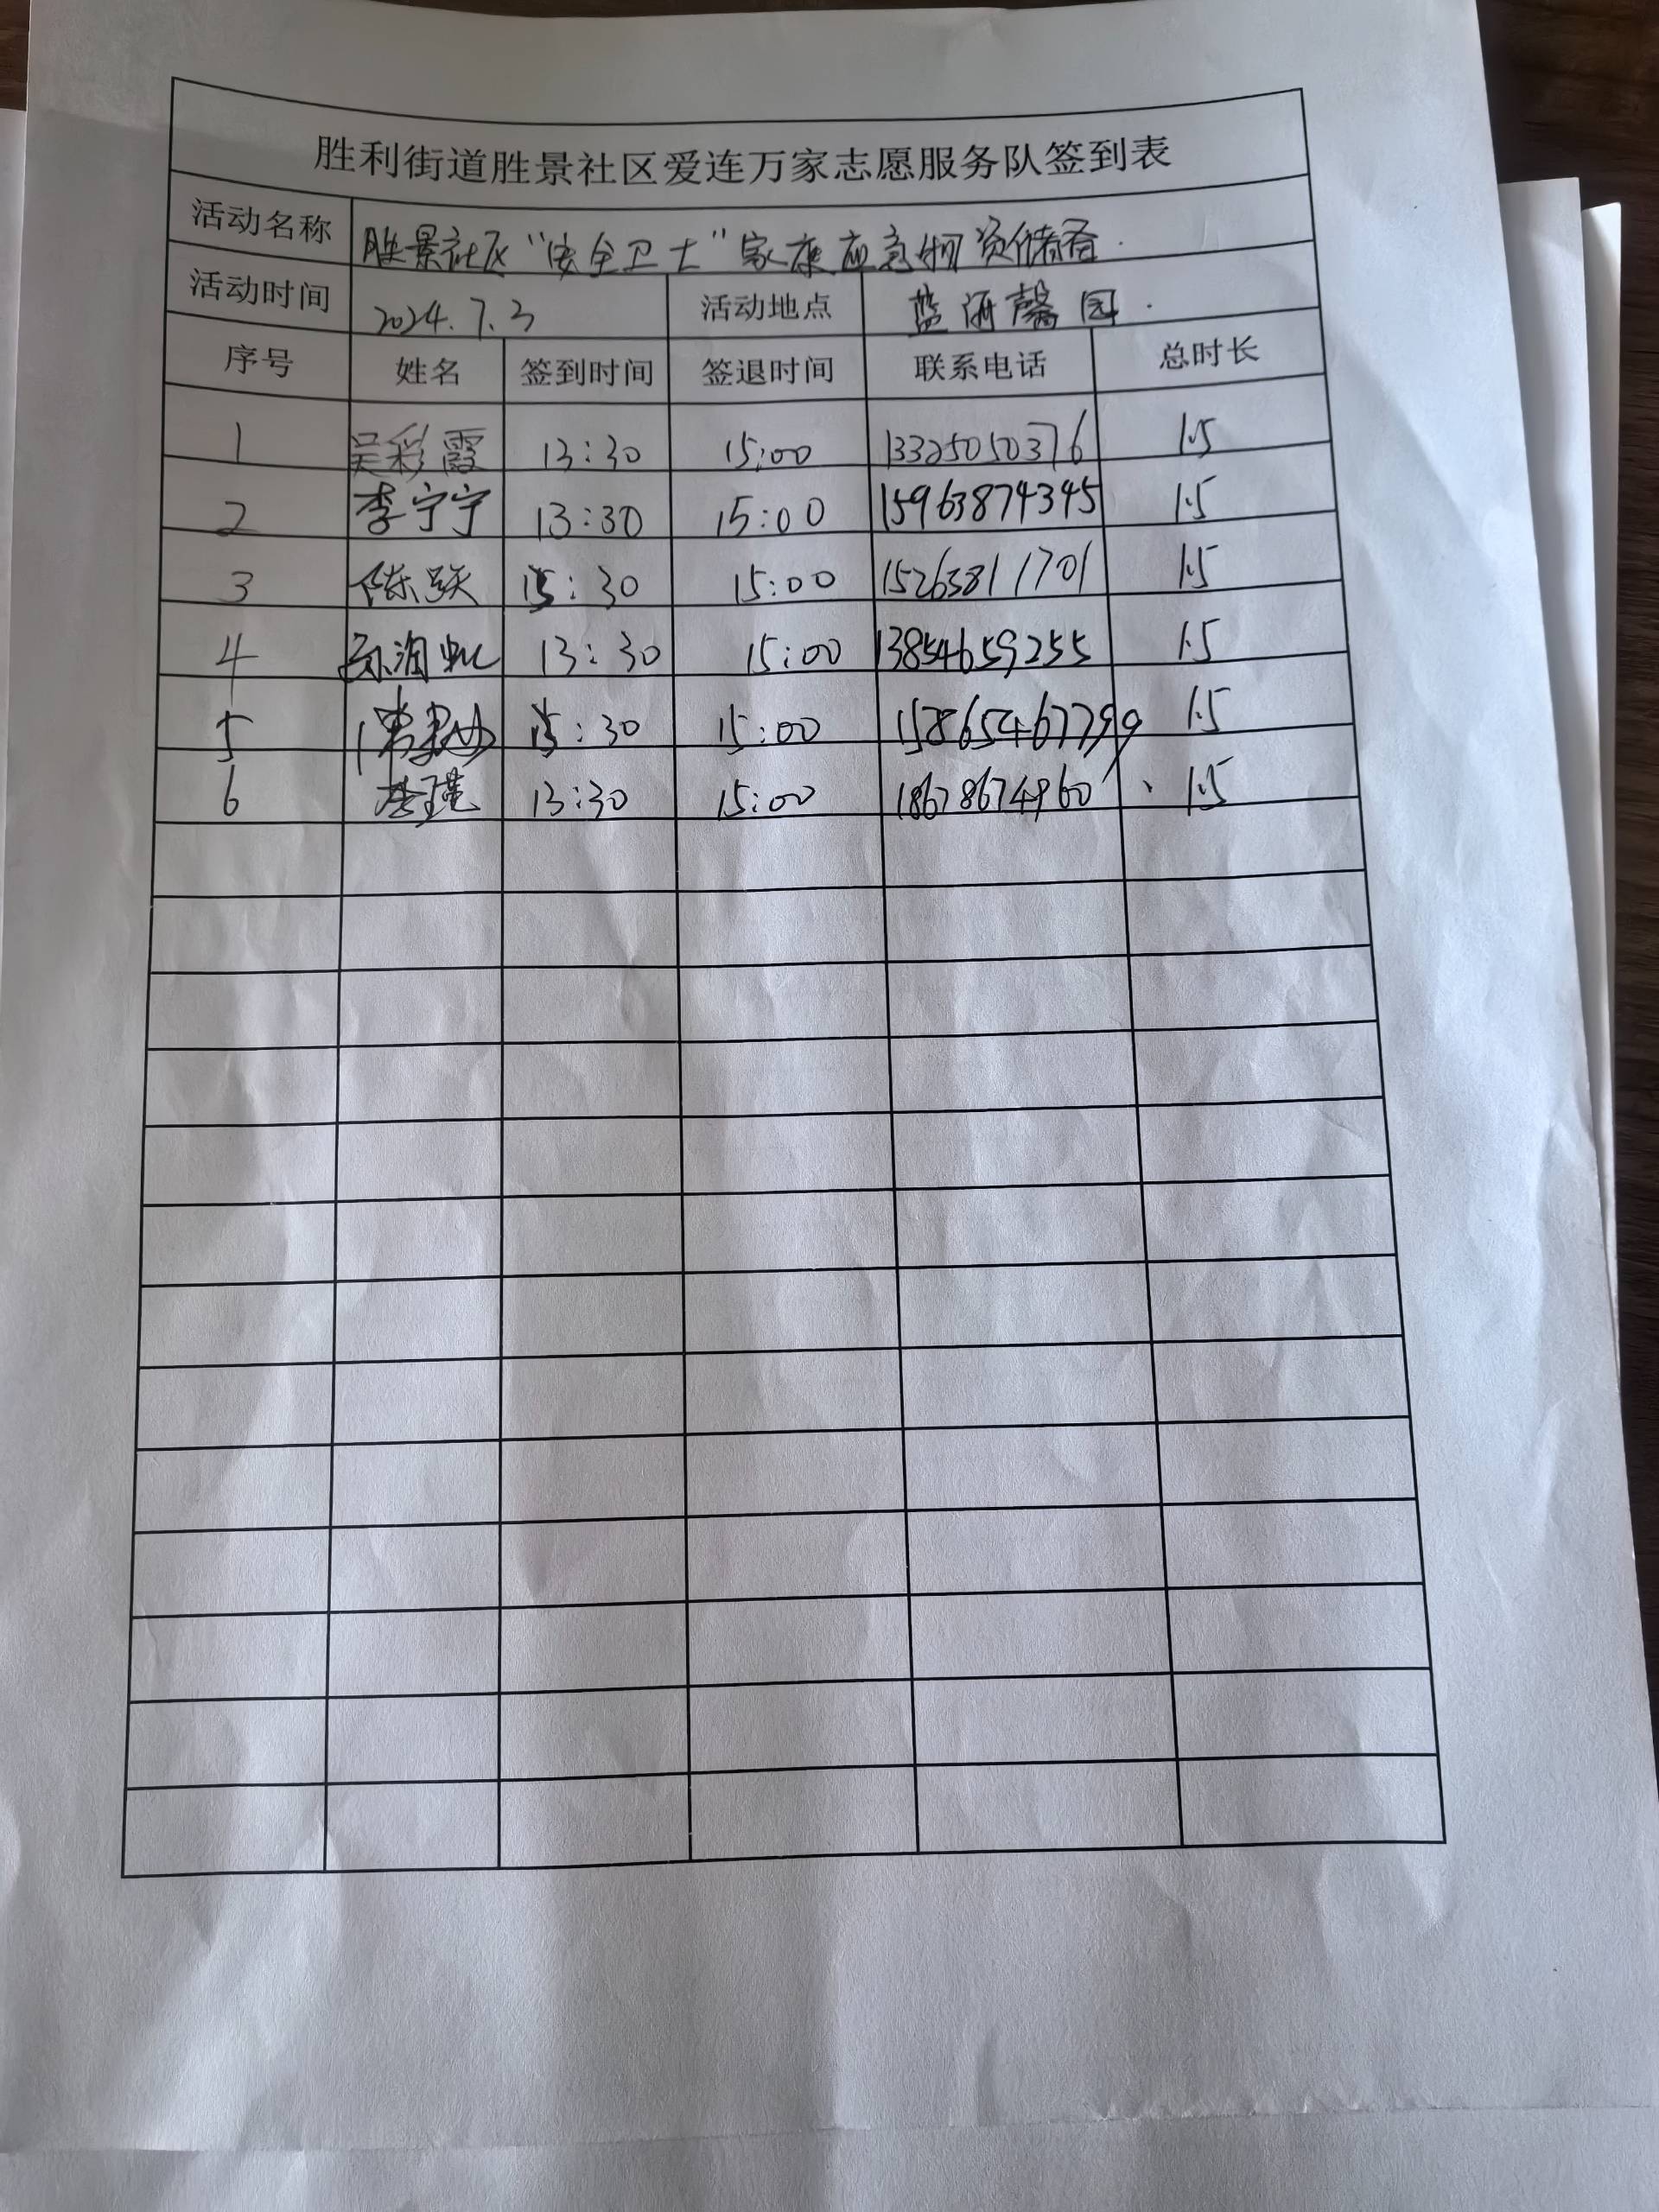 胜利街道胜景社区爱连万家志愿服务队签到表
活动名称 胜景社区“安全卫士”家庭应急物资储备.
活动时间 2024.7.3 活动地点 蓝海馨园.
序号 姓名 签到时间 签退时间 联系电话 总时长
1 吴彩霞 13:30 15:00 13325050376 1.5
2 李宁宁 13:30 15:00 15963874345 1.5
3 陈跃 :30 15:00 15263811701 1.5
4 13:30 15:00 13854659255 1.5
5 :30 15:00 15865467799 1.5
6 13:30 15:00 18678674960 1.5